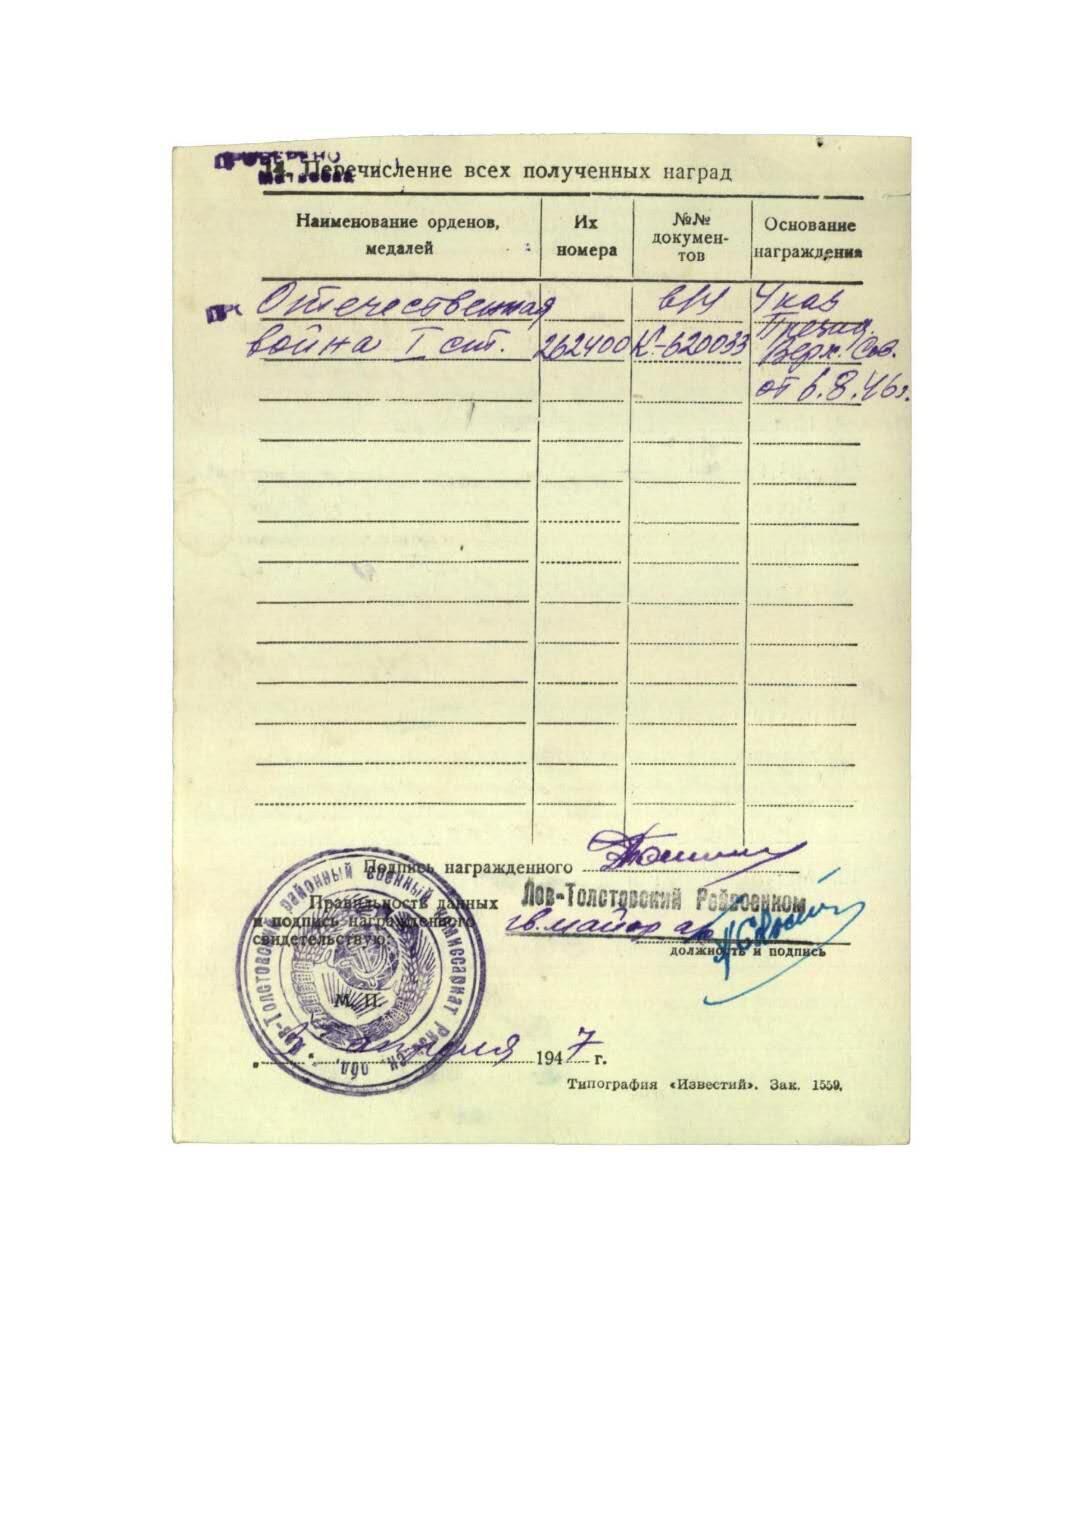 ПРОВЕРЕНО
14. Перечисление всех полученных наград
Наименование орденов, медалей
Их номера
№№ докумен-тов
Основание награждения
Отечественная
война I ст.
262400
К-620033
Указ
Презид.
Верх. Сов.
от 6.8.46г.
Подпись награжденного
Правильность данных
и подпись награжденного
свидетельствую:
Лев-Толстовский Райвоенком
гв. майор
должность и подпись
М. П.
Лев-Толстовский районный военный комиссариат Рязанск. обл.
апреля 1947 г.
Типография «Известий». Зак. 1559.